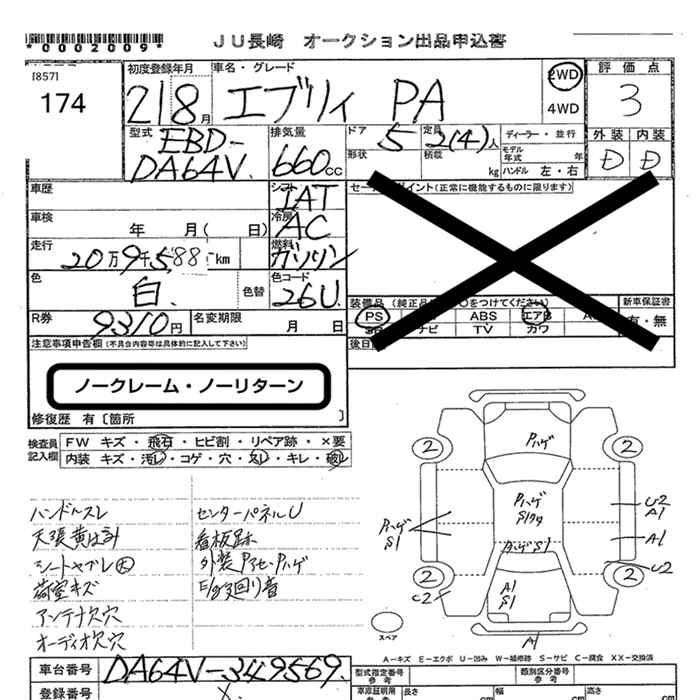 *0002009*
JU長崎 オークション出品申込書
[857]
174
初度登録年月 21 8月
車名・グレード エブリイ PA
2WD
4WD
評価点
3
外装 内装
D D
型式 EBD-
DA64V
排気量 660cc
ドア 5
定員 2(4)人
ディーラー・並行
形状
積載 kg
モデル年式 年
ハンドル 左・右
車歴
シフト IAT
車検 年 月( 日)
冷房 AC
走行 20万9千588km
燃料 ガソリン
色 白
色替
色コード 26U
R券 9310円
名変期限 月 日
セールスポイント(正常に機能するものに限ります)
装備品(純正品に○をつけてください)
新車保証書
有・無
PS ABS エアB
ナビ TV カワ
後日
注意事項申告欄(不具合内容等は具体的に記入して下さい)
ノークレーム・ノーリターン
修復歴 有〔箇所 〕
検査員記入欄
FW キズ・飛石・ヒビ割・リペア跡・×要
内装 キズ・汚れ・コゲ・穴・スレ・キレ・破レ
ハンドルスレ
天張
シートヤブレ大
荷室キズ
アンテナ欠穴
オーディオ欠穴
センターパネルU
看板跡
外装 Pハゲ
E/g 回り音
2
2
2
2
Pハゲ
Pハゲ
S1
Pハゲ S1
Pハゲ
S1
A1
S1
U2
A1
A1
U2
C2
A1
スペア
A-キズ E-エクボ U-凹み W-補修跡 S-サビ C-腐食 XX-交換済
車台番号 DA64V-349569
登録番号
型式指定番号
参考
類別区分番号
参考
車庫証明用
参考
長さ cm
幅 cm
高さ cm